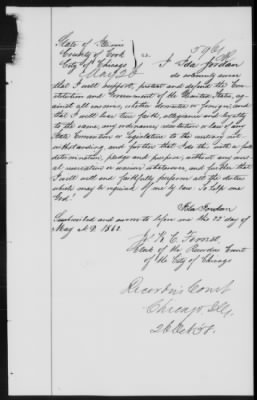 State of Illinois
County of Cook } ss.
City of Chicago
May 26
I Ida Jordan
do solemnly swear
that I will support, protect and defend the Con-
stitution and Government of the United States, ag-
ainst all enemies, whether domestic or foreign, and
that I will bear true faith, allegiance and loyalty
to the same, any ordinance, resolution or law of any
State Convention or Legislature to the contrary not-
withstanding, and further that I do this with a full
determination, pledge and purpose, without any men-
tal reservation or evasion whatsoever, and further that
I will well and faithfully perform all the duties
which may be required of me by law. So help me
God!
Ida Jordan
Subscribed and sworn to before me this 23 day of
May A.D. 186
K. C. Forrest
Clerk of the Recorders Court
of the City of Chicago
Recorder's Court
Chicago, Ills.